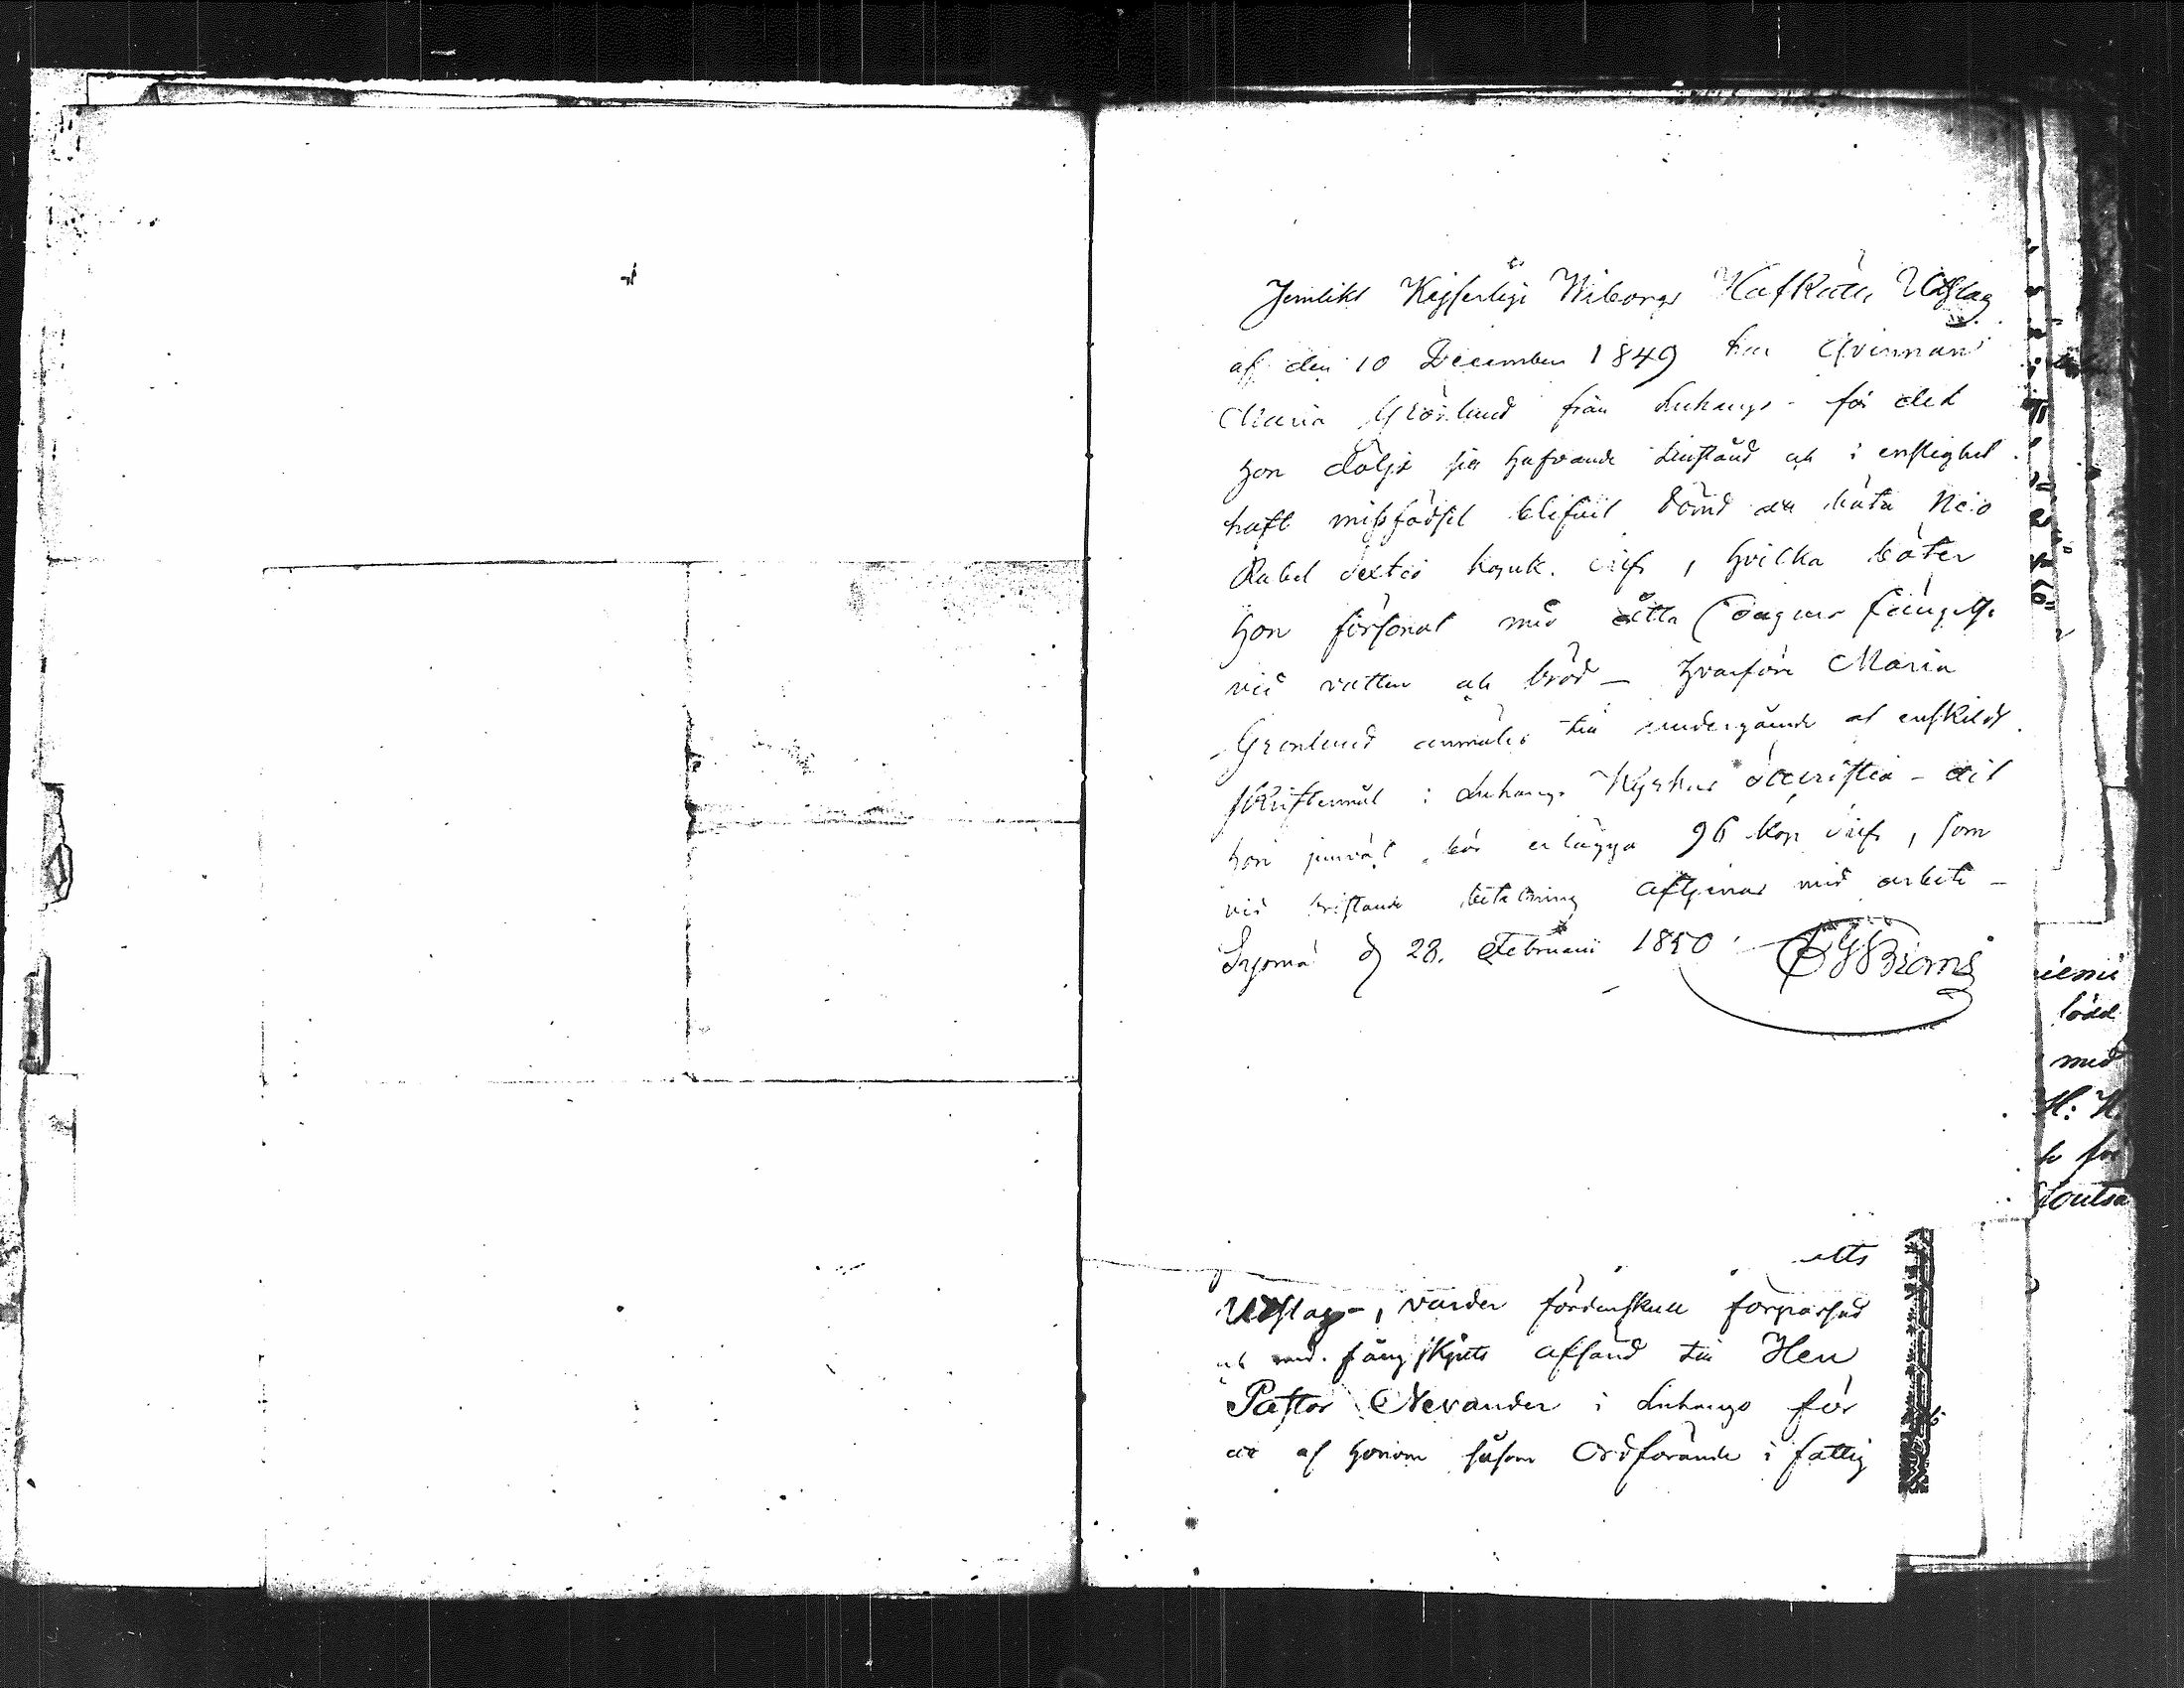 Jemlikt Kejserliga Wiborgs HofRätts Utslag
af den 10 December 1849 har Qvinnan
Maria Grönlund från Luhango - för det
hon döljt sitt hafvande tillstånd och i enslighet
haft missfödsel blifvit dömd att böta Nio
Rubel sextio kopek. silfr, hvilka böter
hon försonat med åtta dagars fängelse
vid vatten och bröd - hvarföre Maria
Grönlund anmäles till undergående af enskildt
skriftermål i Luhango Kyrkas sacristia - dit
hon jemväl bör erlägga 96 kop silfr, som
vid bristande betalning aftjenas med arbete -
Sysmä d 28. Februarii 1850
etts
Utslag -, varder fördenskull förpassad
och med fångskjuts afsänd till Herr
Pastor Nevander i Luhango för
att af honom såsom Ordförande i fattig
födel
med
H: H.
för